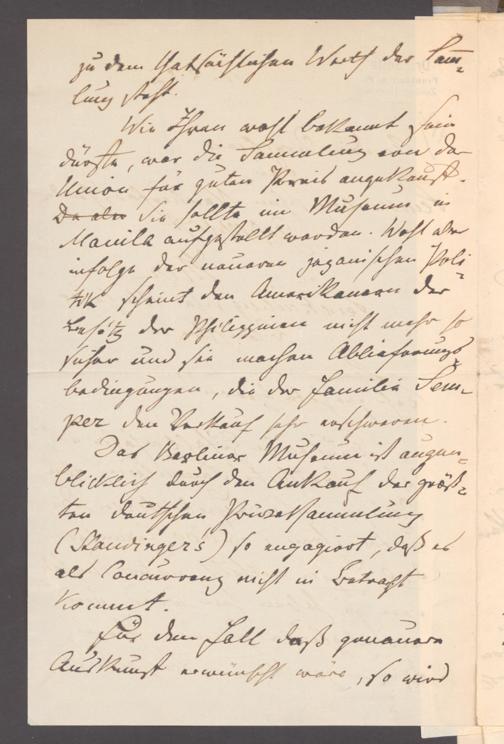 zu dem thatsächlichen Werth der Sam-
lung steht.
Wie Ihnen wohl bekannt sein
dürfte, war die Sammlung von der
Union für guten Preis angekauft.
Da aber Sie sollte im Museum in
Manila aufgestellt werden. Wohl aber
infolge der neueren japanischen Poli-
tik scheint den Amerikanern der
Besitz der Philippinen nicht mehr so
sicher und sie machen Ablieferungs-
bedingungen, die der Familie Sem-
per den Verkauf sehr erschweren.
Das Berliner Museum ist augen-
blicklich durch den Ankauf der größ-
ten deutschen Privatsammlung
(Staudinger's) so engagirt, daß es
als Concurrenz nicht in Betracht
kommt.
Für den Fall daß genauere
Auskunft erwünscht wäre, so wird